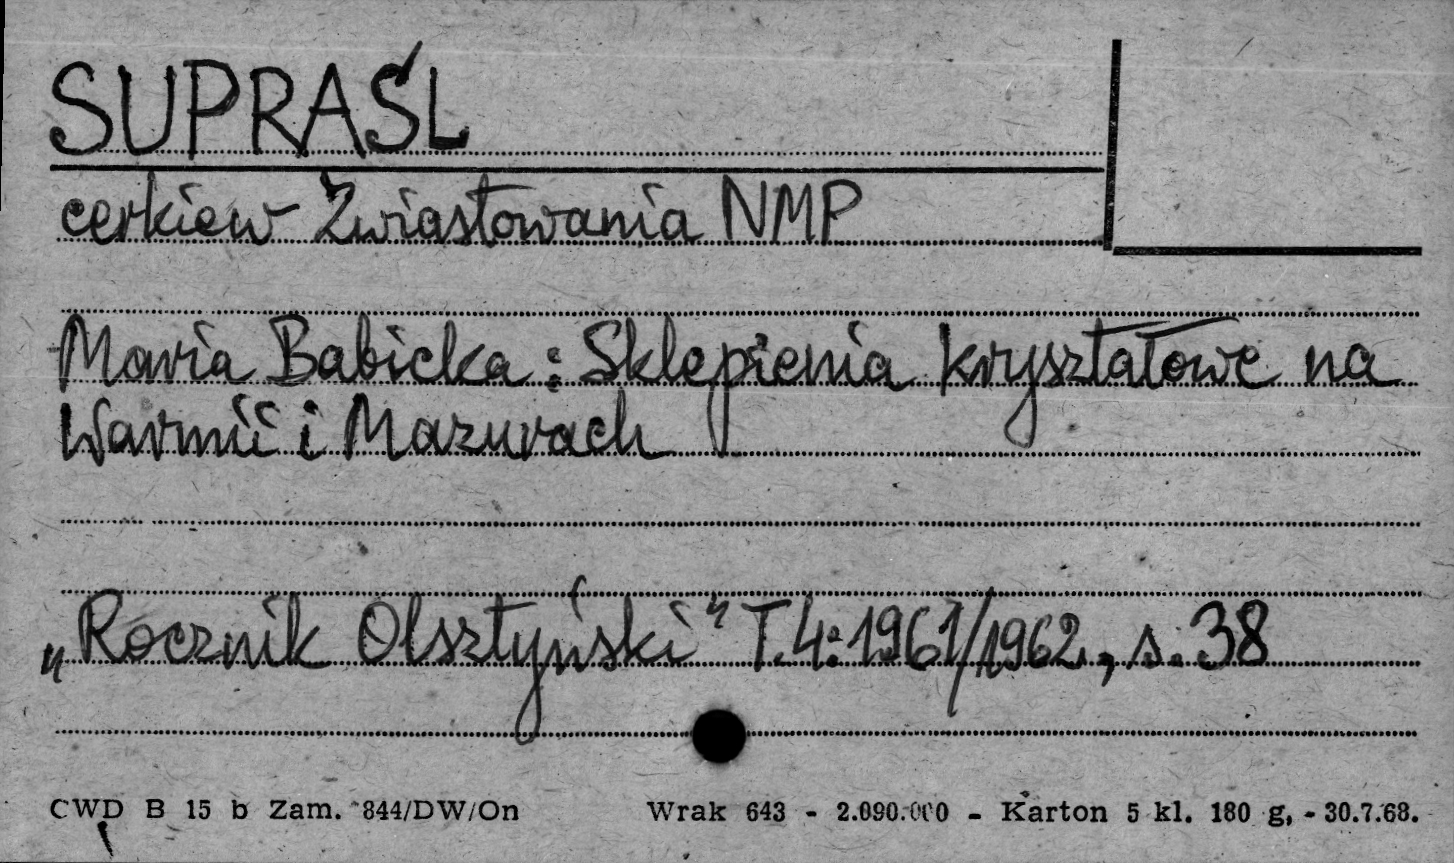 SUPRAŚL
cerkiew Zwiastowania NMP
Maria Babicka: Sklepienia kryształowe na
Warmii i Mazurach
„Rocznik Olsztyński" T.4:1961/1962, s. 38
CWD B 15 b Zam. 844/DW/On Wrak 643 - 2.090.000 - Karton 5 kl. 180 g, - 30.7.68.